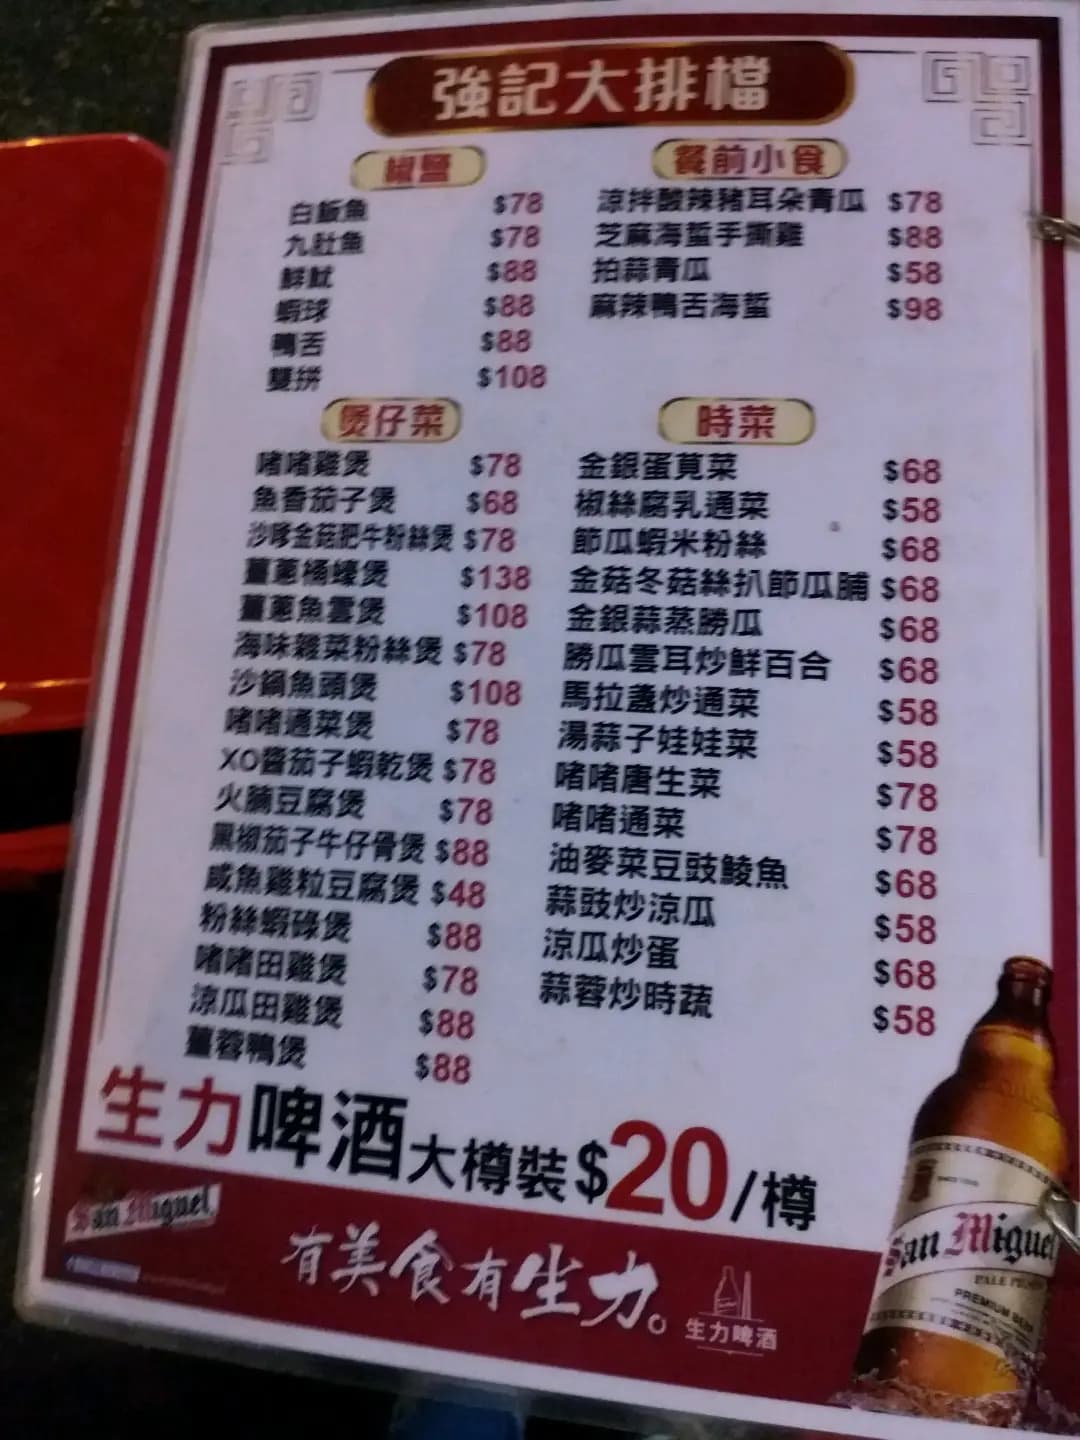 強記大排檔
椒鹽
白飯魚 $78
九肚魚 $78
鮮魷 $88
蝦球 $88
鴨舌 $88
雙拼 $108
餐前小食
涼拌酸辣豬耳朵青瓜 $78
芝麻海蜇手撕雞 $88
拍蒜青瓜 $58
麻辣鴨舌海蜇 $98
煲仔菜
啫啫雞煲 $78
魚香茄子煲 $68
沙嗲金菇肥牛粉絲煲 $78
薑蔥桶蠔煲 $138
薑蔥魚雲煲 $108
海味雜菜粉絲煲 $78
沙鍋魚頭煲 $108
啫啫通菜煲 $78
XO醬茄子蝦乾煲 $78
火腩豆腐煲 $78
黑椒茄子牛仔骨煲 $88
咸魚雞粒豆腐煲 $48
粉絲蝦碌煲 $88
啫啫田雞煲 $78
涼瓜田雞煲 $88
薑蓉鴨煲 $88
時菜
金銀蛋莧菜 $68
椒絲腐乳通菜 $58
節瓜蝦米粉絲 $68
金菇冬菇絲扒節瓜脯 $68
金銀蒜蒸勝瓜 $68
勝瓜雲耳炒鮮百合 $68
馬拉盞炒通菜 $58
湯蒜子娃娃菜 $58
啫啫唐生菜 $78
啫啫通菜 $78
油麥菜豆豉鯪魚 $68
蒜豉炒涼瓜 $58
涼瓜炒蛋 $68
蒜蓉炒時蔬 $58
生力啤酒大樽裝$20/樽
San Miguel
有美食有生力。
生力啤酒
San Miguel
PALE PILSEN
PREMIUM BEER